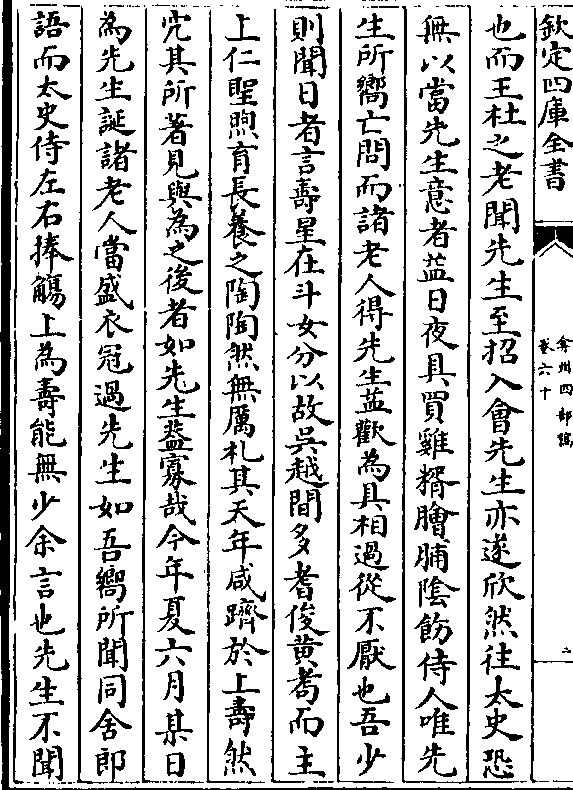 欽定四庫全書
弇州四部稿
卷六十
二
也而王杜之老聞先生至招入會先生亦遂欣然往太史恐
無以當先生意者益日夜具買雞糈膾脯陰飭侍人唯先
生所嚮亡問而諸老人得先生益歡為具相過從不厭也吾少
則聞日者言壽星在斗女分以故吳越間多耆俊黃耇而主
上仁聖煦育長養之陶陶然無厲札其天年咸躋於上壽然
究其所著見與為之後者如先生蓋寡哉今年夏六月某日
為先生誕諸老人當盛衣冠過先生如吾嚮所聞同舍郎
語而太史侍左右捧觴上為壽能無少余言也先生不聞